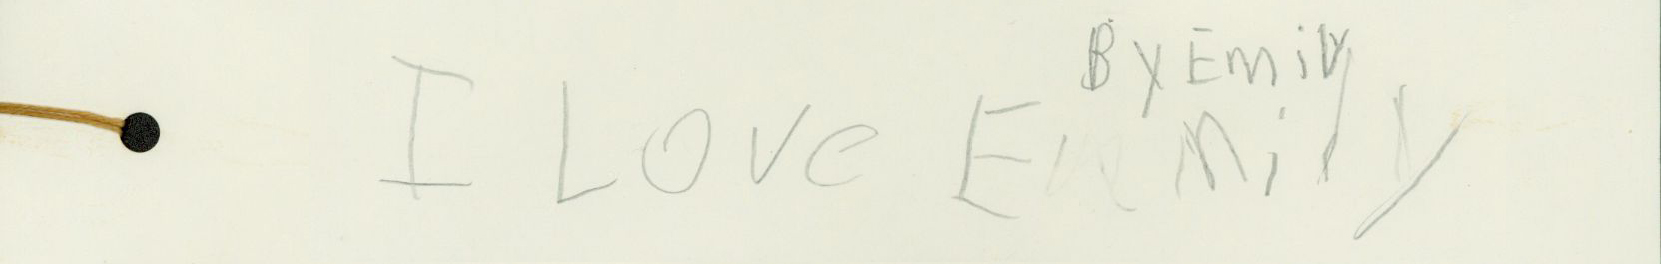 By Emily
I Love Emily